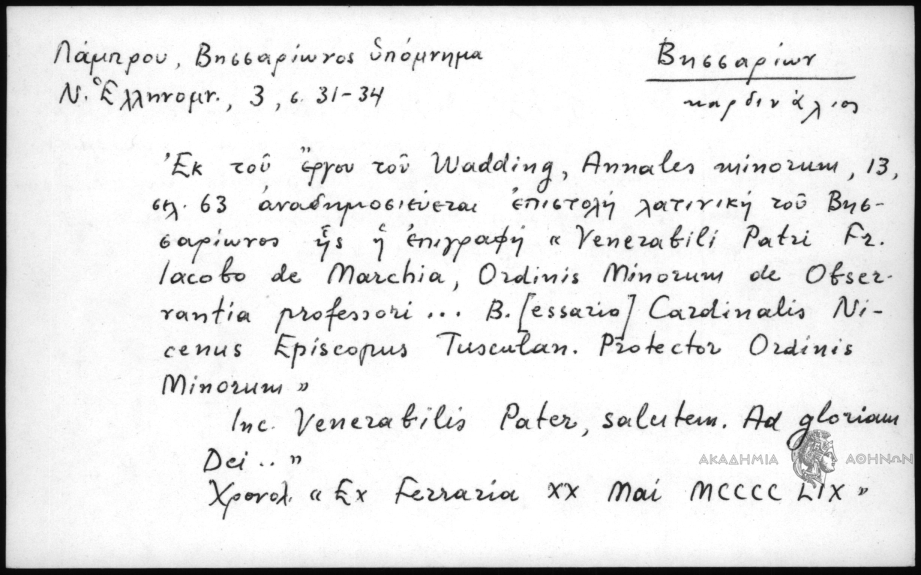 Λάμπρου, Βησσαρίωνος ὑπόμνημα
Βησσαρίων
Ν. Ἑλληνομν., 3, σ. 31-34
καρδινάλιος
Ἐκ τοῦ ἔργου τοῦ Wadding, Annales minorum, 13,
σελ. 63 ἀναδημοσιεύεται ἐπιστολή λατινική τοῦ Βησ-
σαρίωνος ἧς ἡ ἐπιγραφή « Venerabili Patri Fr.
Iacobo de Marchia, Ordinis Minorum de Obser-
vantia professori ... B. [essario] Cardinalis Ni-
cenus Episcopus Tusculan. Protector Ordinis
Minorum »
Inc. Venerabilis Pater, salutem. Ad gloriam
Dei .. »
ΑΚΑΔΗΜΙΑ ΑΘΗΝΩΝ
Χρονολ. « Ex Ferraria XX Mai MCCCC LIX »